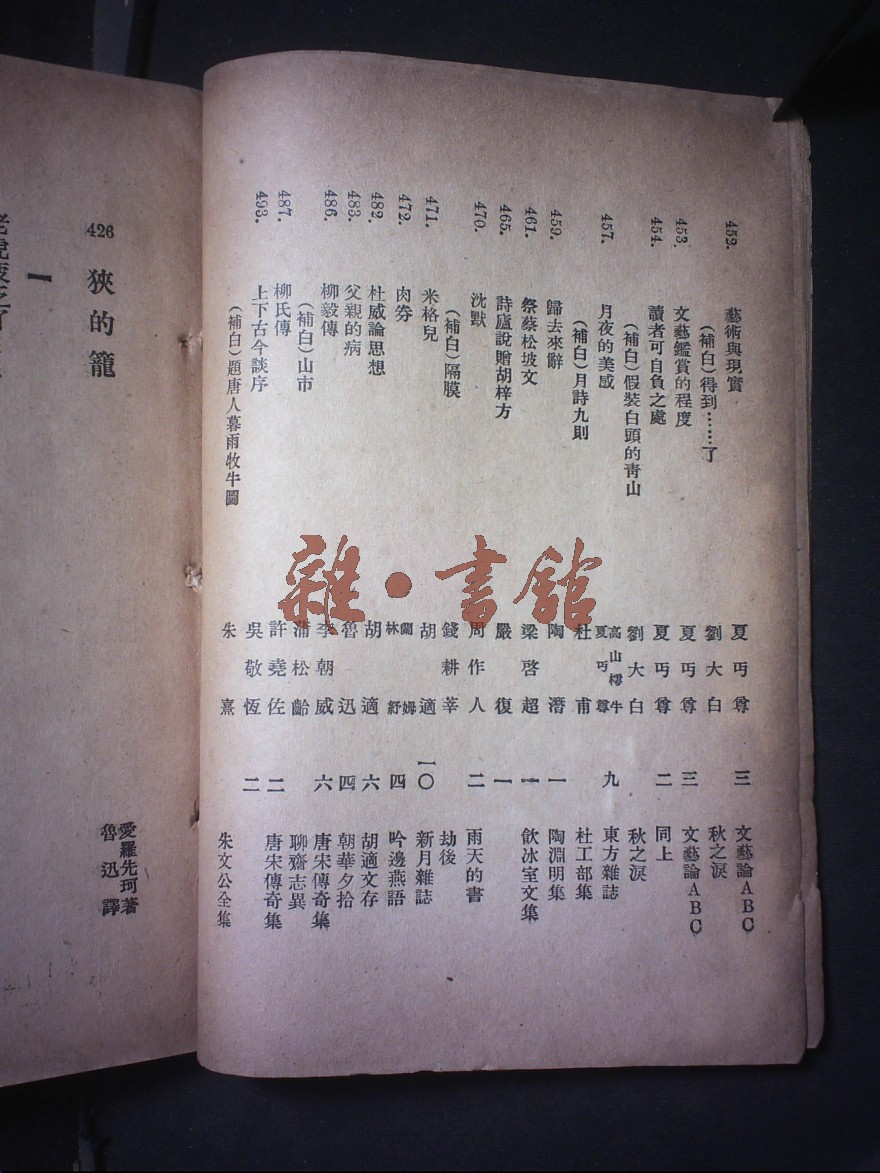 452. 藝術與現實 夏丏尊 三 文藝論ABC
(補白)得到……了 劉大白 秋之淚
453. 文藝鑑賞的程度 夏丏尊 三 文藝論ABC
454. 讀者可自負之處 夏丏尊 二 同上
(補白)假裝白頭的靑山 劉大白 秋之淚
457. 月夜的美感 高山樗牛 夏丏尊 九 東方雜誌
(補白)月詩九則 杜甫 杜工部集
459. 歸去來辭 陶潛 一 陶淵明集
461. 祭蔡松坡文 梁啓超 一 飲冰室文集
465. 詩廬說贈胡梓方 嚴復 一
470. 沈默 周作人 二 雨天的書
(補白)隔膜 錢耕莘 劫後
471. 米格兒 胡適 一〇 新月雜誌
472. 肉券 蘭姆 林紓 四 吟邊燕語
482. 杜威論思想 胡適 六 胡適文存
483. 父親的病 魯迅 四 朝華夕拾
486. 柳毅傳 李朝威 六 唐宋傳奇集
(補白)山市 蒲松齡 聊齋志異
487. 柳氏傳 許堯佐 二 唐宋傳奇集
493. 上下古今談序 吳敬恆 二
(補白)題唐人暮雨牧牛圖 朱熹 朱文公全集
雜·書館
426 狹的籠
愛羅先珂著
魯迅譯
一